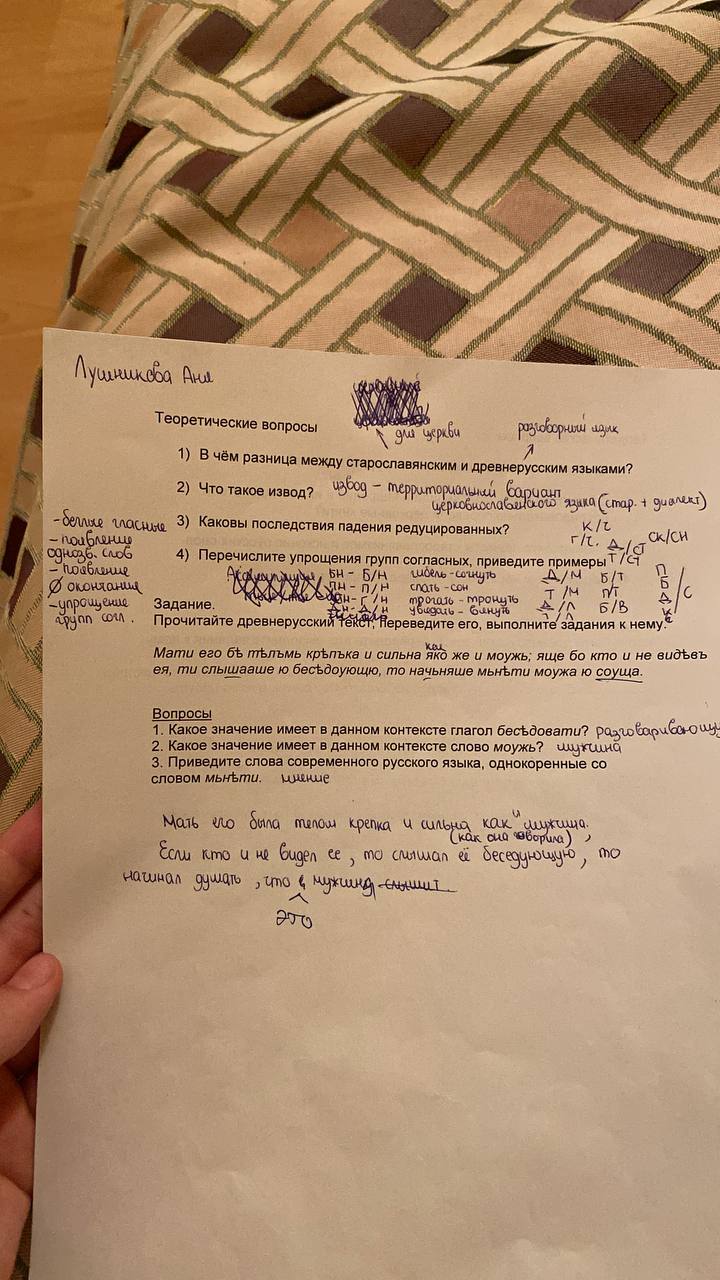 Лушникова Аня
Теоретические вопросы
для церкви
разговорный язык
1) В чём разница между старославянским и древнерусским языками?
2) Что такое извод? извод – территориальный вариант
церковнославянского языка (стар. + диалект)
3) Каковы последствия падения редуцированных?
- беглые гласные
- появление
однозв. слов
- появление
∅ окончания
- упрощение
групп согл.
4) Перечислите упрощения групп согласных, приведите примеры
к/ч
г/ч.
ск/сн
д/ст
т/ст
бн - б/н гибель - сгинуть д/м б/т п
пн - п/н спать - сон т/м п/т б
гн - г/н трогать - тронуть д/л б/в д /с
дн - д/н увядать - вянуть т/л к
Задание.
Прочитайте древнерусский текст, переведите его, выполните задания к нему.
как
Мати его бѣ тѣлъмь крѣпъка и сильна яко же и моужь; яще бо кто и не видѣвъ
ея, ти слышааше ю бесѣдоующю, то начьняше мьнѣти моужа ю соуща.
Вопросы
1. Какое значение имеет в данном контексте глагол бесѣдовати? разговаривающу
2. Какое значение имеет в данном контексте слово моужь? мужчина
3. Приведите слова современного русского языка, однокоренные со
словом мьнѣти. мнение
Мать его была телом крепка и сильна как и мужчина.
(как она говорила),
Если кто и не видел ее, то слышал её беседующую, то
начинал думать, что мужчина слышит
это